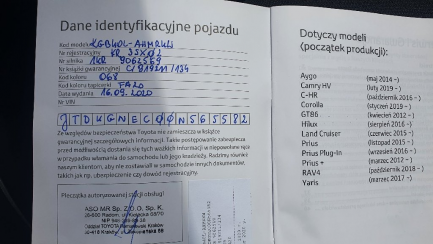 Dane identyfikacyjne pojazdu
Kod modelu KGB40L-AHMRKW
Nr rejestracyjny KR 3SX02
Nr silnika 1KR 9062569
Nr książki gwarancyjnej
Kod koloru 068
Kod koloru tapicerki FA20
Data wydania 16.09.2020
Nr VIN
JTDKGNEC00N565582
Ze względów bezpieczeństwa Toyota nie zamieszcza w książce
gwarancyjnej szczegółowych informacji. Takie postępowanie zabezpiecza
przed możliwością dostania się tych ważkich informacji w niepowołane ręce
w przypadku włamania do samochodu lub jego kradzieży. Radzimy również
naszym klientom, aby nie zostawiali w samochodzie innych dokumentów,
takich jak np. ubezpieczenie czy dowód rejestracyjny.
Pieczątka autoryzowanej stacji obsługi
ASO MR Sp. Z O.O. Sp. K.
Dotyczy modeli
(początek produkcji):
Aygo (maj 2014 –)
Camry HV (luty 2019 –)
C-HR (październik 2016 –)
Corolla (styczeń 2019 –)
GT86 (kwiecień 2012 –)
Hilux (sierpień 2016 –)
Land Cruiser (czerwiec 2015 –)
Prius (listopad 2015 –)
Prius Plug-In (wrzesień 2016 –)
Prius + (marzec 2012 –)
RAV4 (październik 2018 –)
Yaris (marzec 2017 –)